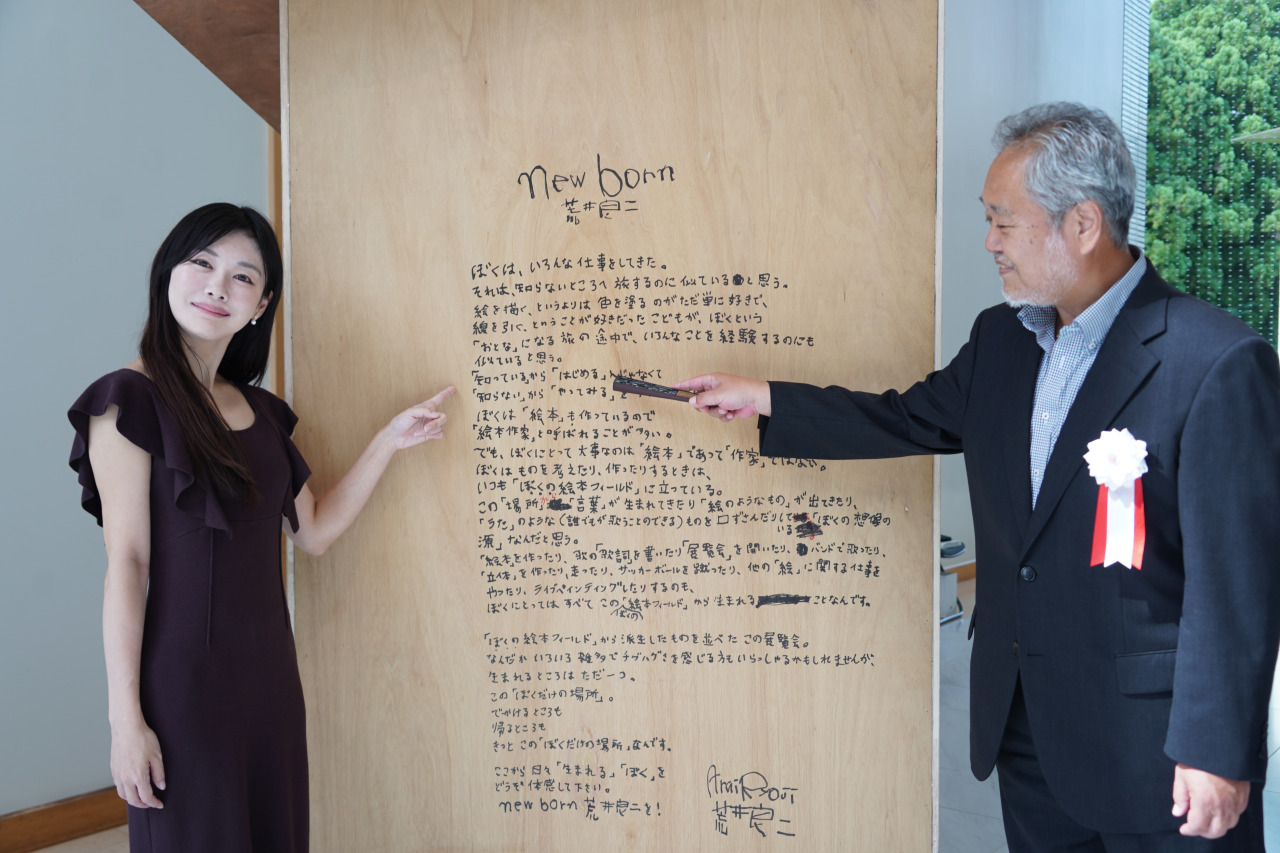 new born
荒井良二
ぼくは、いろんな仕事をしてきた。
それは、知らないところへ旅するのに似ていると思う。
絵を描く、というよりは色を塗るのがただ単に好きで、
線を引く、ということが好きだったこどもが、ぼくという
「おとな」になる旅の途中で、いろんなことを経験するのにも
似ていると思う。
「知っている」から「はじめる」んじゃなくて
「知らない」から「やってみる」
ぼくは「絵本」も作っているので
「絵本作家」と呼ばれることが多い。
でも、ぼくにとって大事なのは"絵本"であって「作家」ではない。
ぼくはものを考えたり、作ったりするときは、
いつも「ぼくの絵本フィールド」に立っている。
この「場所」「言葉」が生まれてきたり「絵のようなもの」が出てきたり、
「うた」のような(誰でもが歌うことのできる)ものを口ずさんだりしている「ぼくの想像の
源」なんだと思う。
「絵本」を作ったり、歌の「歌詞」を書いたり「展覧会」を開いたり、バンドで歌ったり、
「立体」を作ったり、走ったり、サッカーボールを蹴ったり、他の「絵」に関する仕事を
やったり、ライブペインティングしたりするのも、
ぼくにとっては、すべてこの「ぼくの絵本フィールド」から生まれることなんです。
「ぼくの絵本フィールド」から派生したものを並べたこの展覧会。
なんだかいろいろ雑多でチグハグさを感じる方もいらっしゃるかもしれませんが、
生まれるところはただ一つ。
この「ぼくだけの場所」。
でかけるところも
帰るところも
きっとこの「ぼくだけの場所」なんです。
ここから日々「生まれる」「ぼく」を
どうぞ体感して下さい。
new born 荒井良二を!
Arai Ryoji
荒井良二